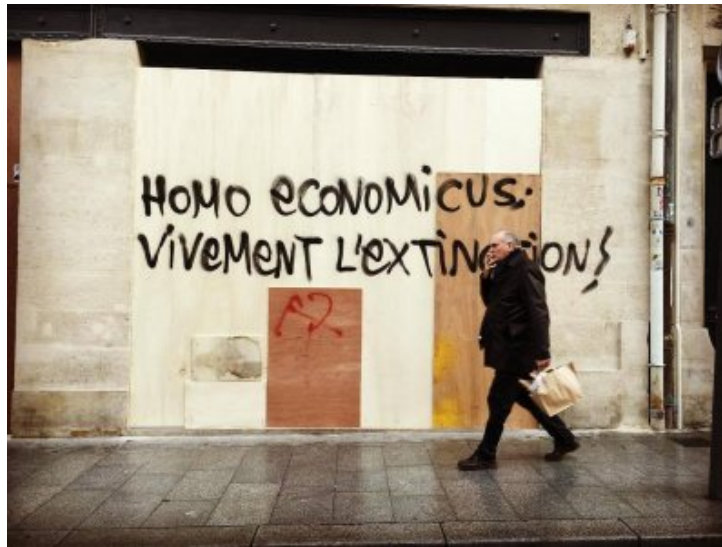 HOMO eCONOMiCUS:
ViVeMENT L'eXTiNCTiON!